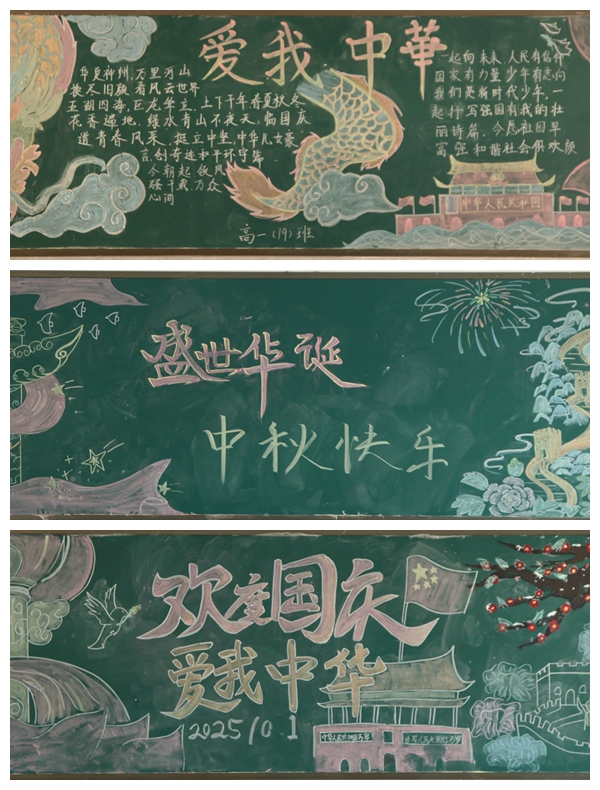 爱我中華
华夏神州,万里河山
换尽旧貌看风云世界
五湖四海,巨龙华立,上下千年春夏秋冬
花香遍地,绿水青山不夜天,临国庆
道青春风采,挺立中坚,中华儿女豪
言,创奇迹和平环宇
今朝起
强千秋万众
一起向未来,人民有信仰
国家有力量,少年有志向
我们是新时代少年,一
起抒写强国有我的壮
丽诗篇,今愿祖国早
富强和谐社会俱欢颜
中华人民共和国
高一(19)班
盛世华诞
中秋快乐
欢度国庆
爱我中华
2025/10 1